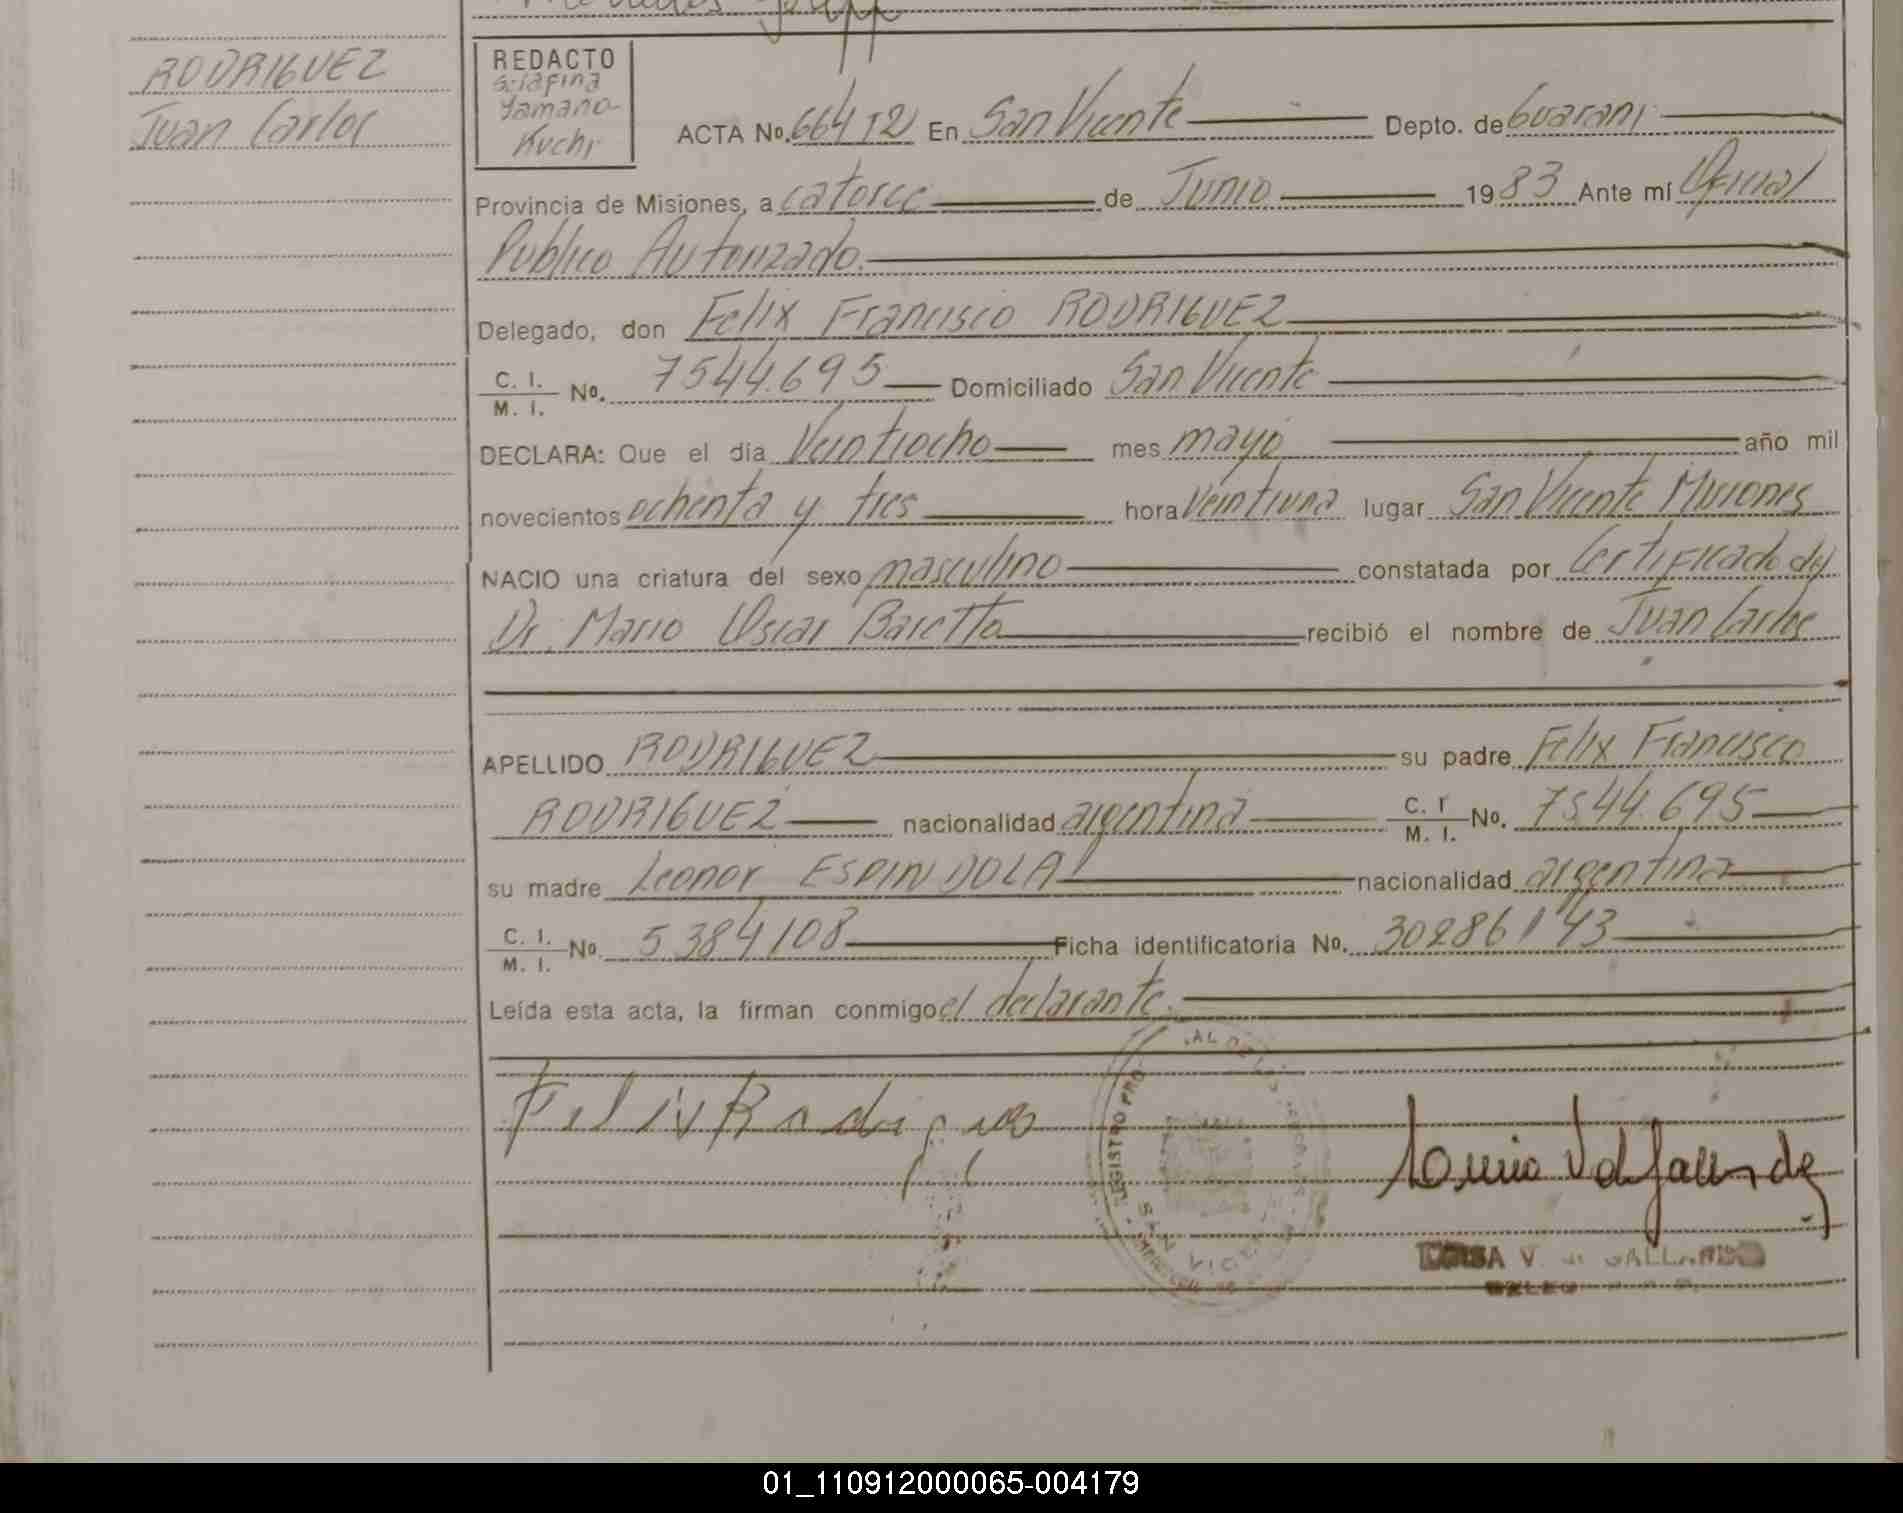 RODRIGUEZ
Juan Carlos
REDACTO
Serafina
Yamano
Kuchi
ACTA No. 664 T2 En San Vicente Depto. de Guarani
Provincia de Misiones, a catorce de Junio 1983 Ante mí Oficial
Publico Autorizado.
Delegado, don Felix Francisco RODRIGUEZ
C. I.
M. I. No. 7544.695 Domiciliado San Vicente
DECLARA: Que el día Veintiocho mes mayo año mil
novecientos ochenta y tres hora Veintiuna lugar San Vicente Misiones
NACIO una criatura del sexo masculino constatada por Certificado del
Dr. Mario Oscar Baretto recibió el nombre de Juan Carlos
APELLIDO RODRIGUEZ su padre Felix Francisco
RODRIGUEZ nacionalidad argentina C. I
M. I. No. 7544.695
su madre Leonor ESPINDOLA nacionalidad argentina
C. I.
M. I. No. 5384108 Ficha identificatoria No. 30286143
Leída esta acta, la firman conmigo el declarante.
Felix Rodriguez
REGISTRO PRO
SAN VICEN
V. GALLARDO
01_110912000065-004179